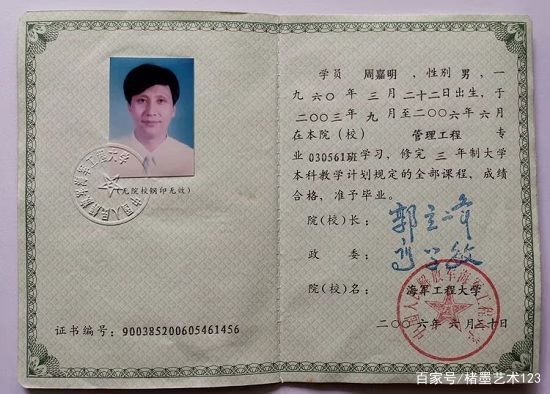 中国人民解放军海军工程大学
(无院校钢印无效)
证书编号：900385200605461456
学员 周嘉明，性别 男，一
九六〇年 三月二十二日出生，于
二〇〇三年 九月至二〇〇六年 六月
在本院（校） 管理工程 专
业 030561班学习，修完 三 年制大学
本科教学计划规定的全部课程，成绩
合格，准予毕业。
院（校）长：
政 委：
院（校）名： 海军工程大学
二〇〇六年 六月三十日
中国人民解放军海军工程大学
百家号/楮墨艺术123